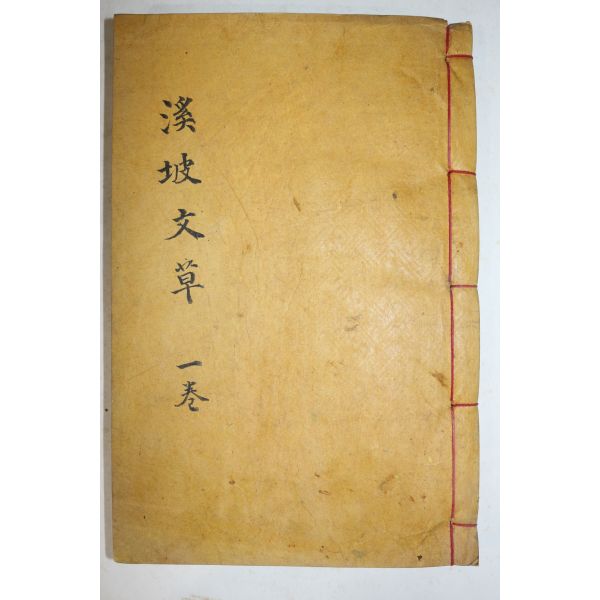 溪坡文草 一卷